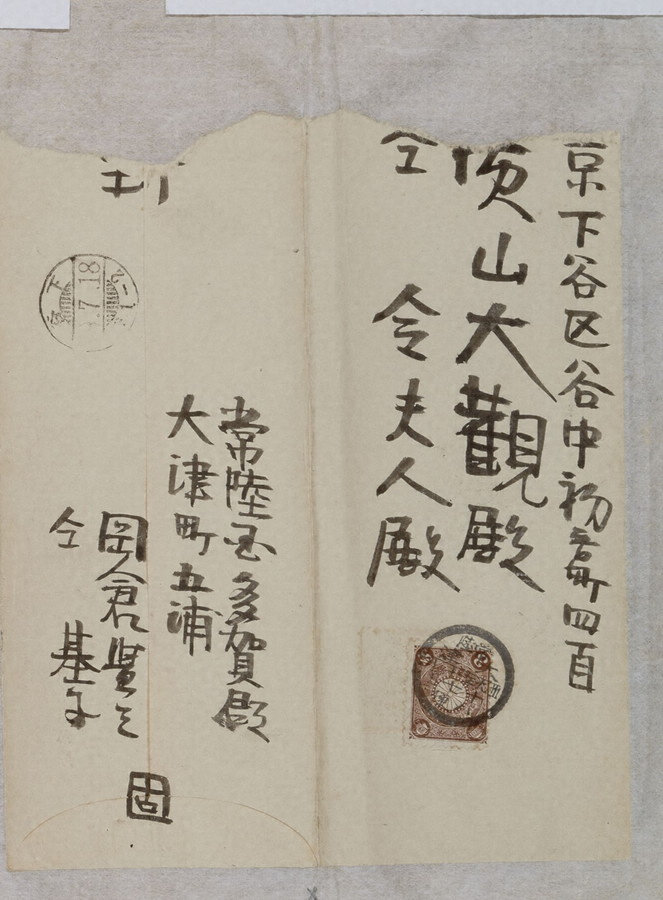 京下谷区谷中初音町四百
横山大觀殿
仝 令夫人殿
常陸国多賀郡
大津町五浦
岡倉覺三
仝 基子
固
7.18